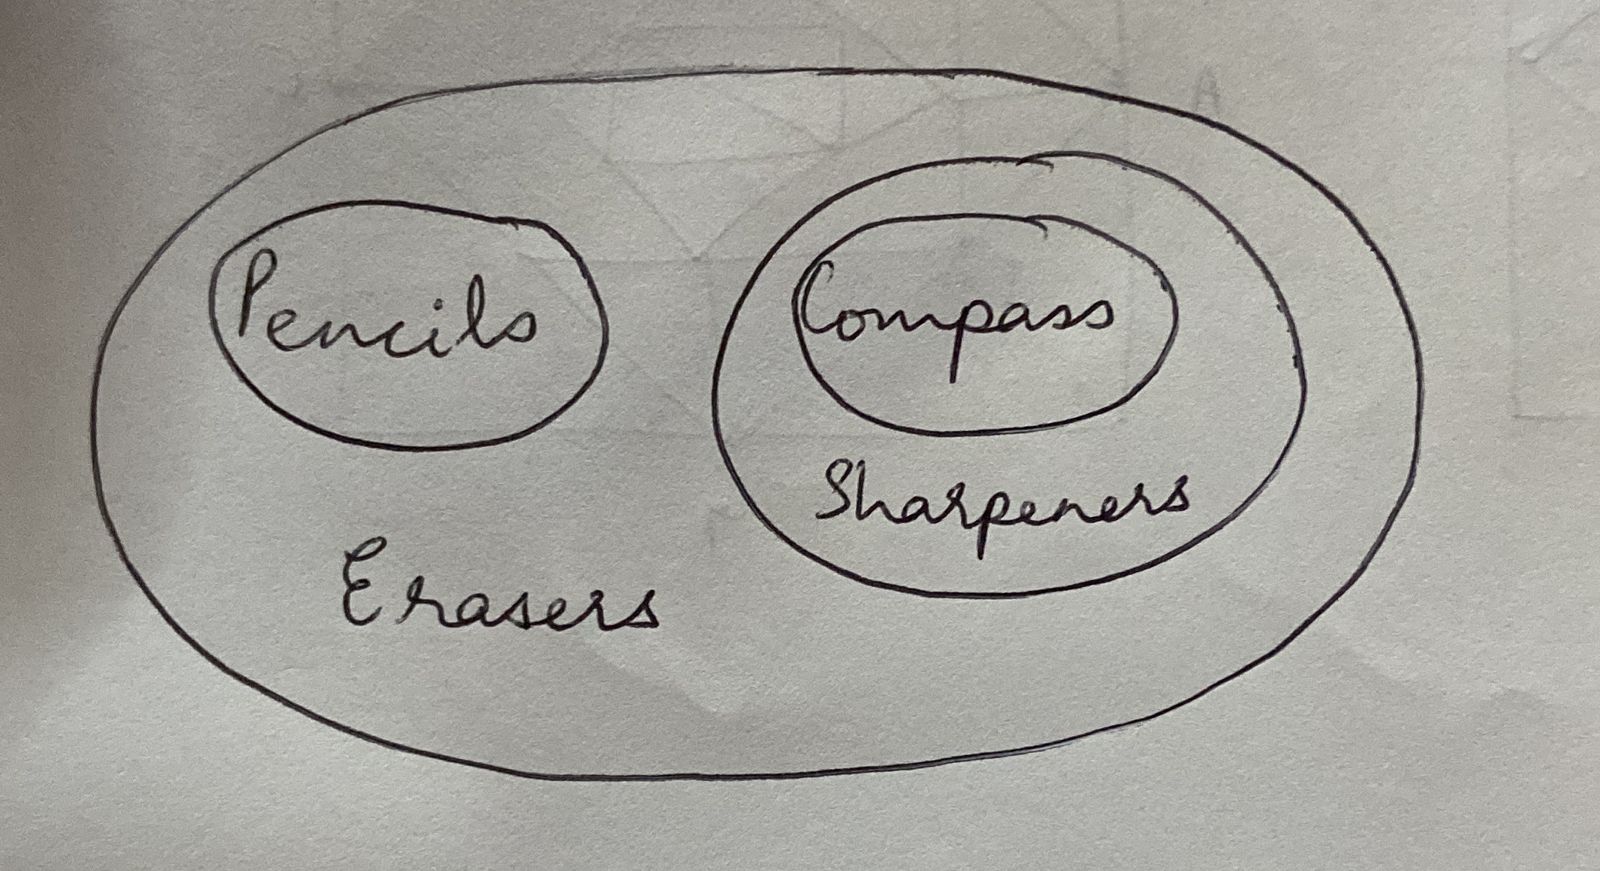 Pencils
Compass
Sharpeners
Erasers